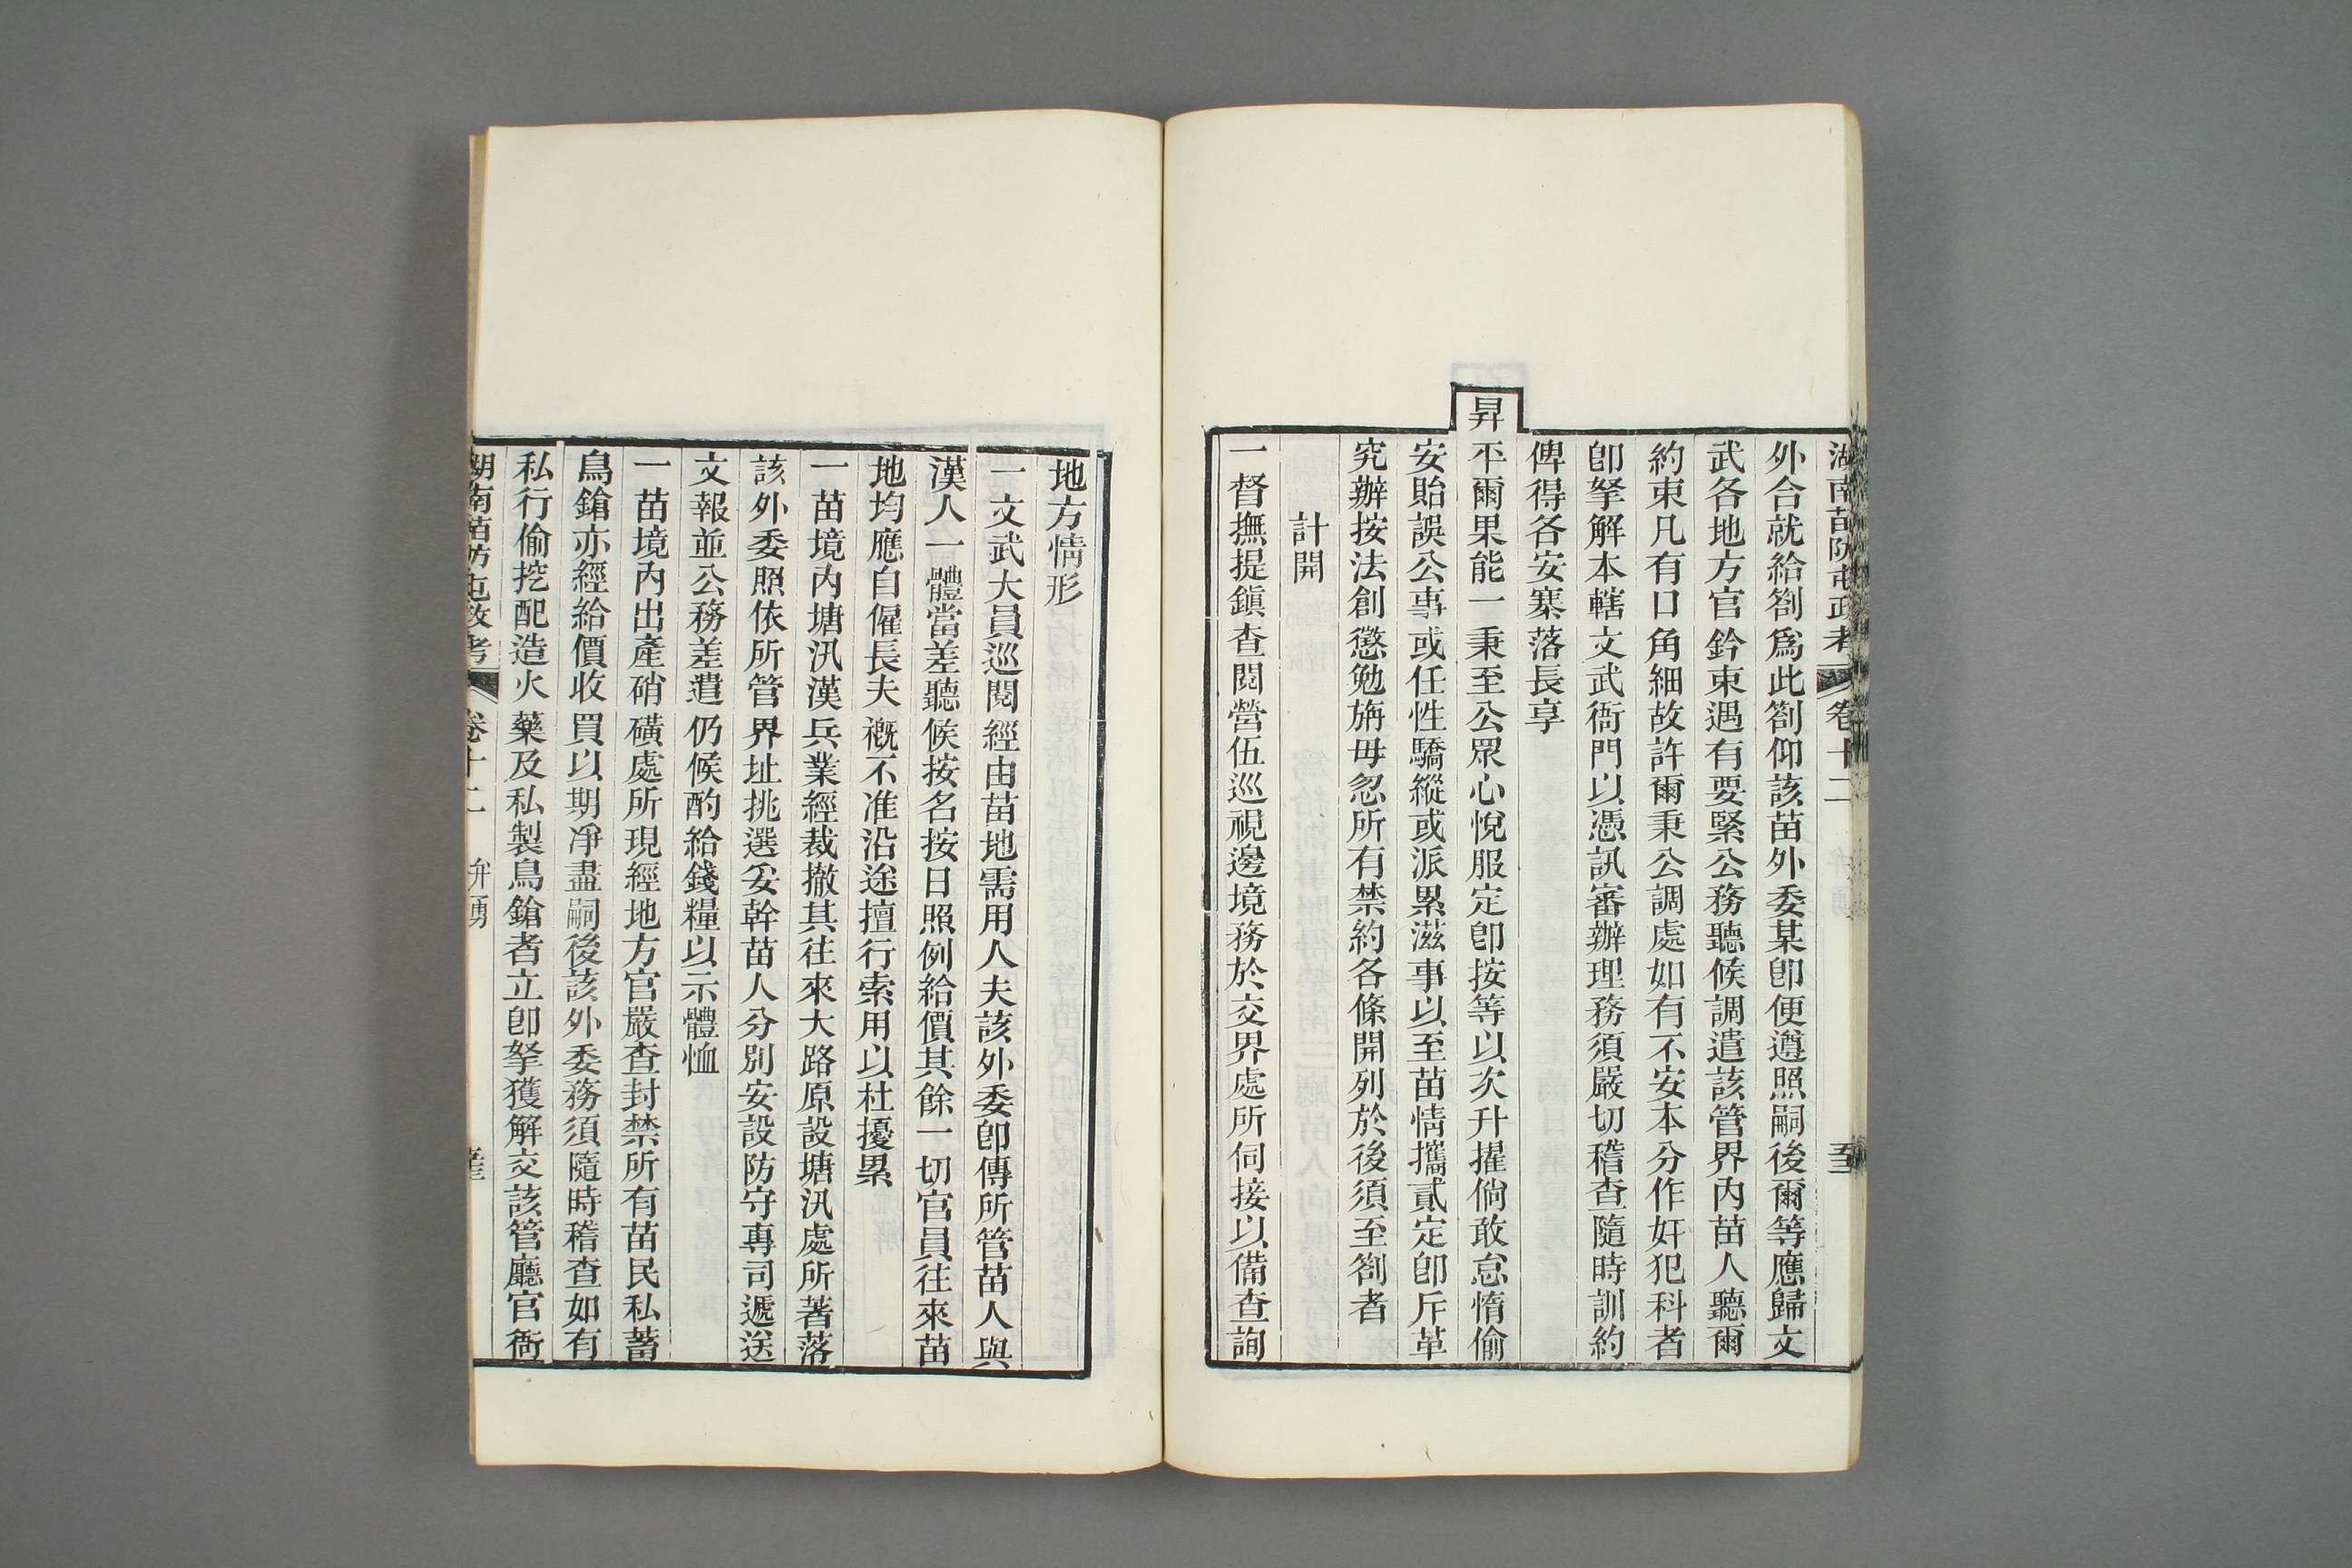 湖南苗防屯政考 卷十二 弁勇
外合就給劄爲此劄仰該苗外委某卽便遵照嗣後爾等應歸文
武各地方官鈐束遇有要緊公務聽候調遣該管界內苗人聽爾
約束凡有口角細故許爾秉公調處如有不安本分作奸犯科者
卽拏解本轄文武衙門以憑訊審辦理務須嚴切稽查隨時訓約
俾得各安寨落長享
昇平爾果能一秉至公眾心悅服定卽按等以次升擢倘敢怠惰偷
安貽誤公事或任性驕縱或派累滋事以至苗情攜貳定卽斥革
究辦按法創懲勉旃毋忽所有禁約各條開列於後須至劄者
計開
一督撫提鎭查閱營伍巡視邊境務於交界處所伺接以備查詢
地方情形
一文武大員巡閱經由苗地需用人夫該外委卽傳所管苗人與
漢人一體當差聽候按名按日照例給價其餘一切官員往來苗
地均應自僱長夫槪不准沿途擅行索用以杜擾累
一苗境內塘汛漢兵業經裁撤其往來大路原設塘汛處所著落
該外委照依所管界址挑選妥幹苗人分別安設防守專司遞送
文報並公務差遣仍候酌給錢糧以示體恤
一苗境內出產硝磺處所現經地方官嚴查封禁所有苗民私蓄
鳥鎗亦經給價收買以期凈盡嗣後該外委務須隨時稽查如有
私行偷挖配造火藥及私製鳥鎗者立卽拏獲解交該管廳官衙
湖南苗防屯政考 卷十二 弁勇